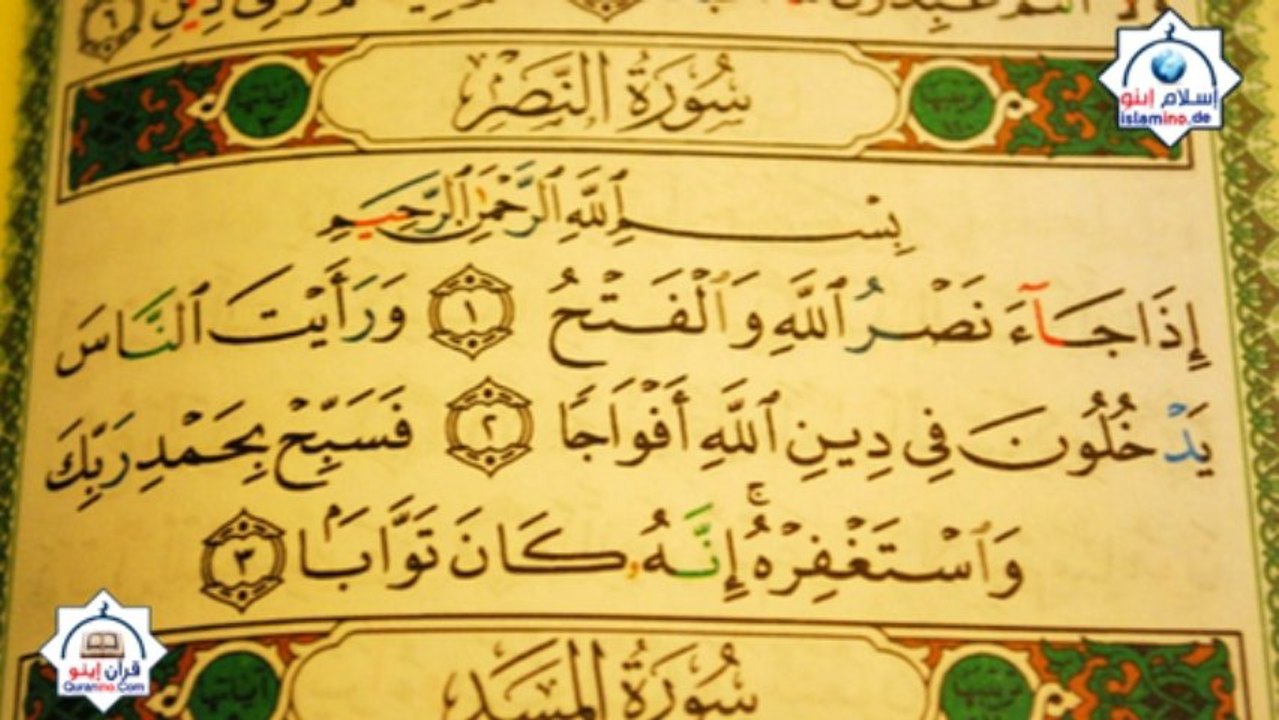 سُورَةُ النَّصْرِ
بِسْمِ ٱللَّهِ ٱلرَّحْمَٰنِ ٱلرَّحِيمِ
إِذَا جَآءَ نَصْرُ ٱللَّهِ وَٱلْفَتْحُ ١ وَرَأَيْتَ ٱلنَّاسَ
يَدْخُلُونَ فِى دِينِ ٱللَّهِ أَفْوَاجًا ٢ فَسَبِّحْ بِحَمْدِ رَبِّكَ
وَٱسْتَغْفِرْهُ ۚ إِنَّهُۥ كَانَ تَوَّابَۢا ٣
سُورَةُ المَسَدِ
إسلام إينو
islamino.de
قرآن إينو
Quranino.Com